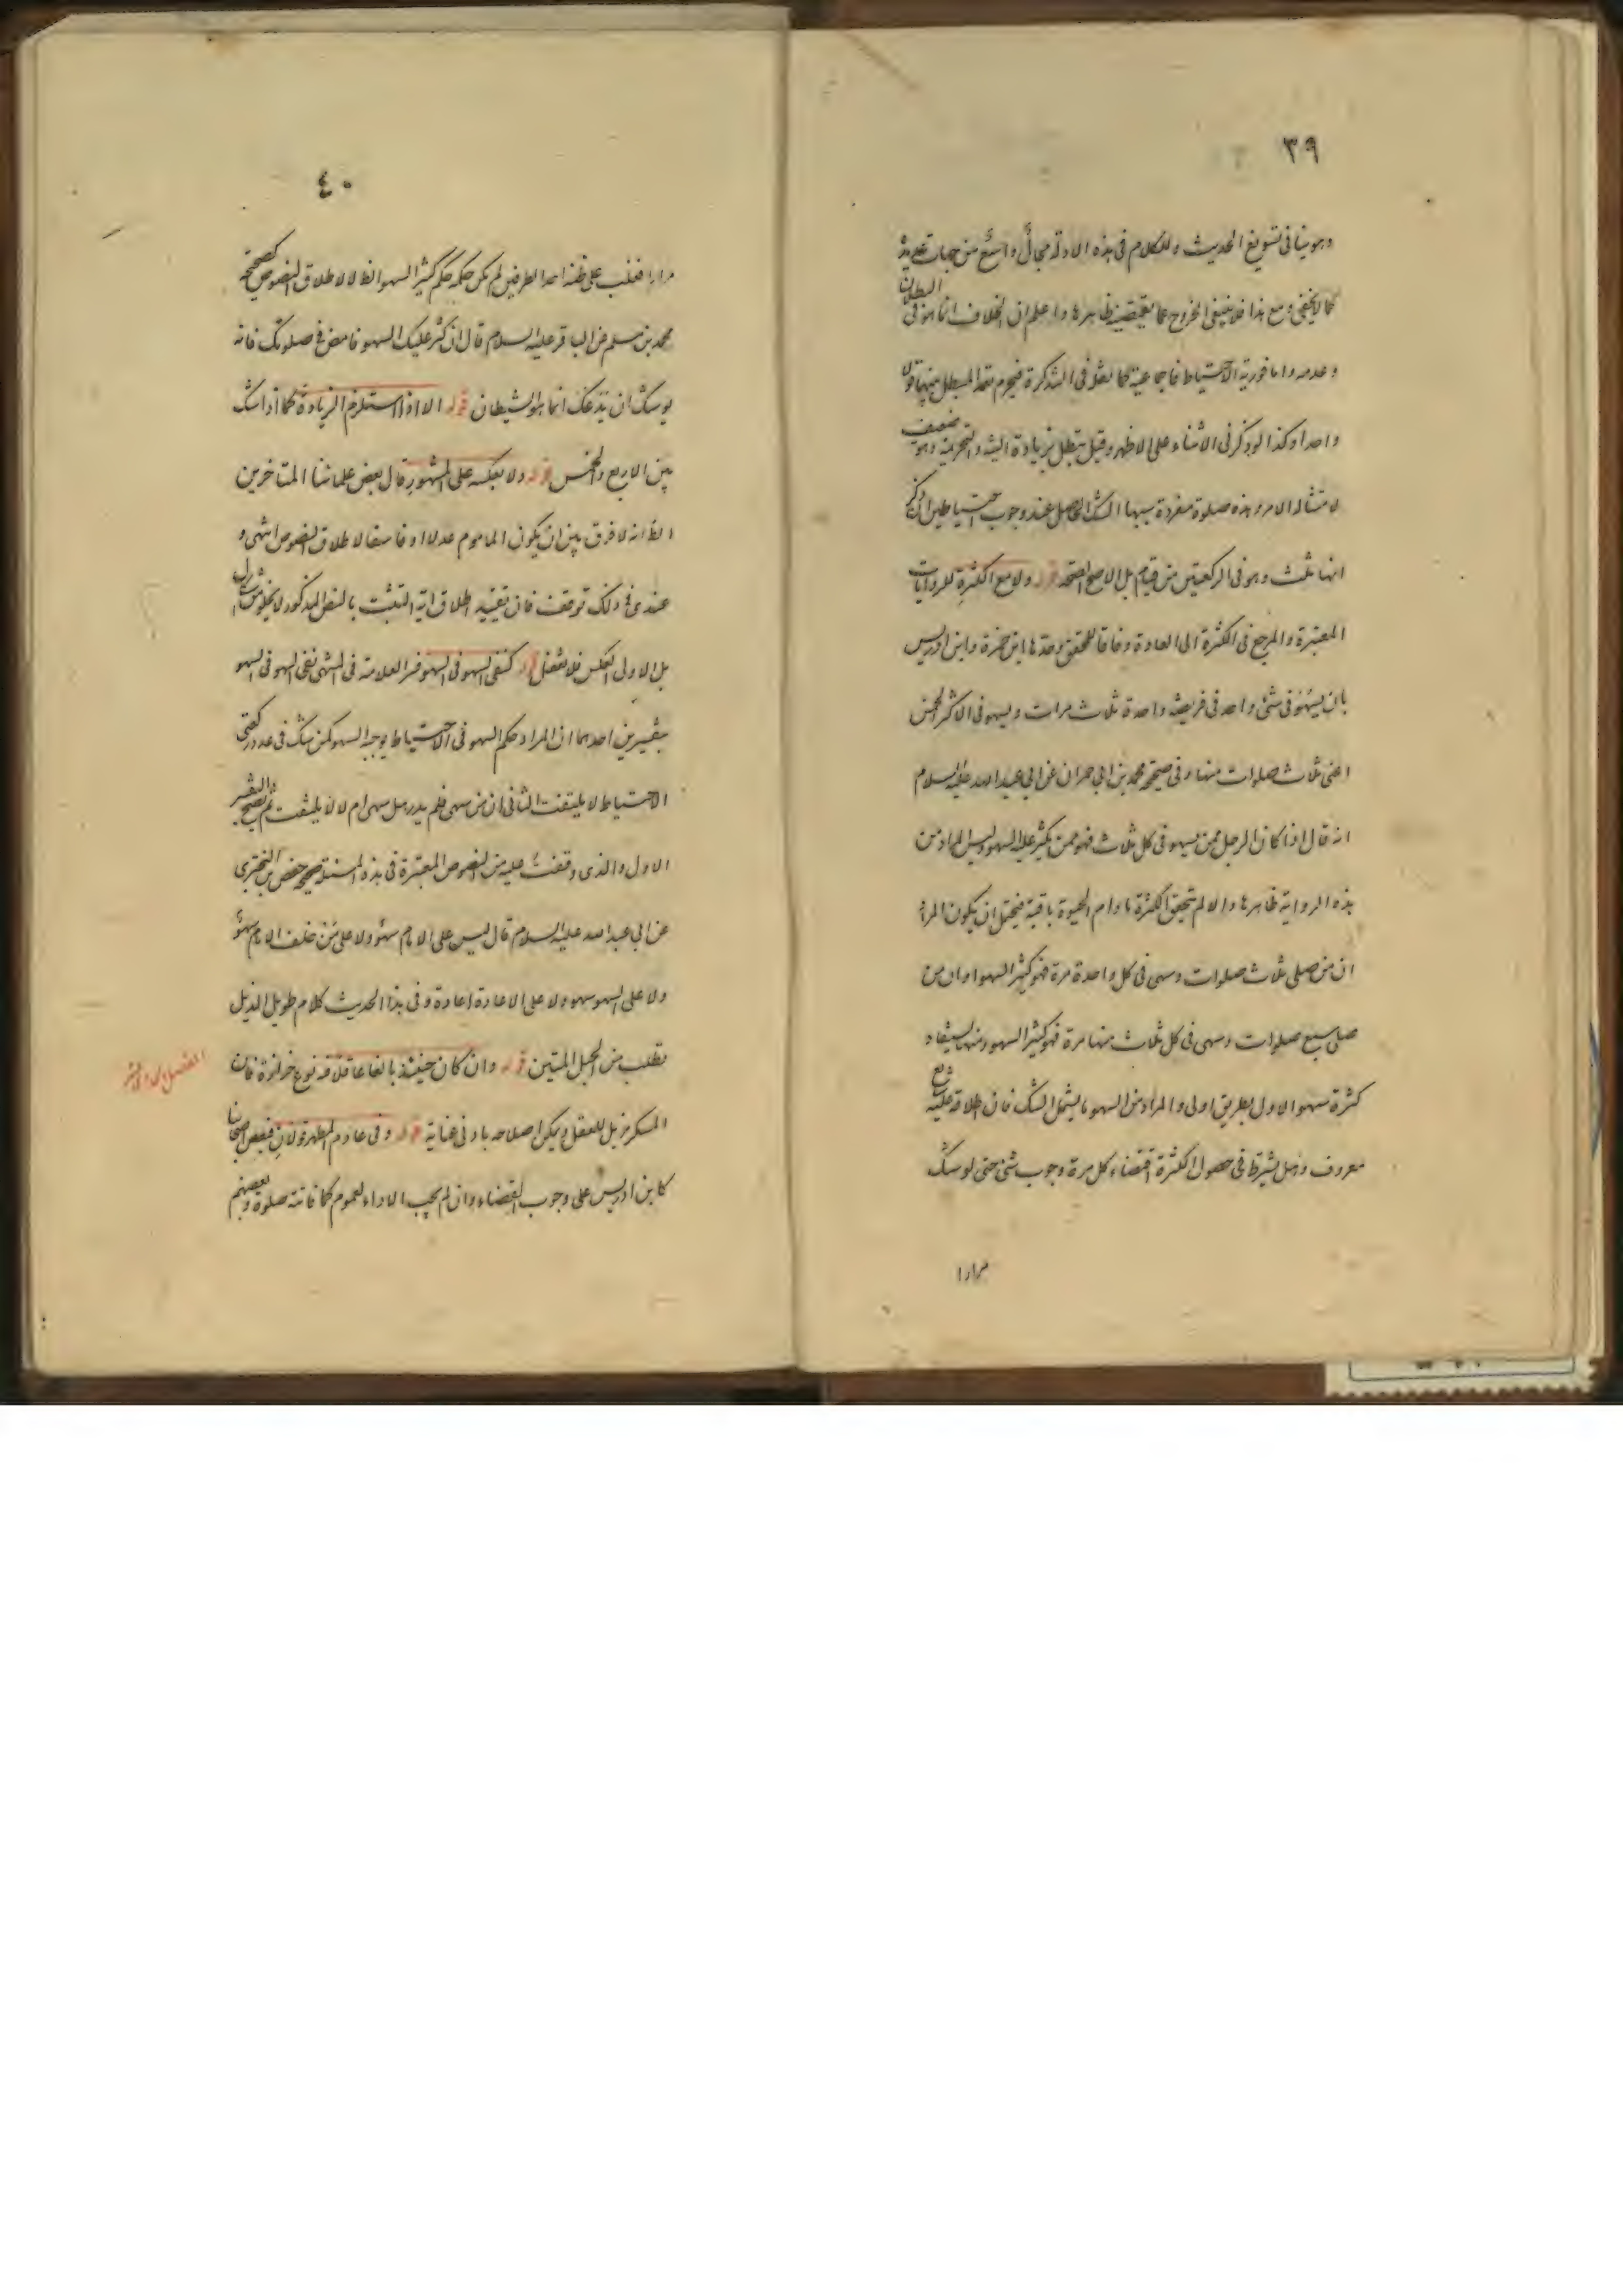 ٣٩
وهو ينافى تسويغ الحديث وللكلام فى هذه الادلة مجالٌ واسعٌ من جهات عديدة
كما لا يخفى ومع هذا فلا ينبغى الخروج عما يقتضيه ظاهرها واعلم ان الخلاف انما هو فى البطلان
وعدمه واما فورية الاحتياط فاجماعية كما نقله فى التذكرة فيحرم تخلل المبطل بينهما قولا
واحدا وكذا لو ذكر فى الاثناء على الاظهر وقيل تبطل بزيادة النية والتحريمة وهو ضعيف
لامتثاله الامر وهذه صلوة مفردة سببها الشك الحاصل عند وجوب احتياطين ان ذكر
انها ثلث وهو فى الركعتين من قيام بل الاصح الصحة قوله ولا مع الكثرة للروايات
المعتبرة والمرجع فى الكثرة الى العادة وفاقا للمحقق وحدها ابن حمزة وابن ادريس
بان يسهو فى شئ واحد فى فريضة واحدة ثلاث مرات ويسهو فى اكثر الخمس
اعنى ثلاث صلوات منها وفى صحيحة محمد بن ابى حمران عن ابى عبد الله عليه السلام
انه قال اذا كان الرجل ممن يسهو فى كل ثلاث فهو ممن يكثر عليه السهو وليس المراد من
هذه الرواية ظاهرها والا لم تتحقق الكثرة ما دام الحيوة باقية فيحتمل ان يكون المراد
ان من صلى ثلاث صلوات وسهى فى كل واحدة مرة فهو كثير السهو او ان من
صلى سبع صلوات وسهى فى كل ثلاث منها مرة فهو كثير السهو ومنها يستفاد
كثرة سهو الاول بطريق اولى والمراد من السهو ما يشمل الشك فان اطلاقه عليه شايع
معروف وهل يشترط فى حصول الكثرة اقتضاء كل مرة وجوب شئ حتى لو شك
مرارا
٤٠
مرارا فغلب على ظنه احد الطرفين لم يكن حكمه حكم كثير السهو الظ لا لاطلاق النصوص كصحيحة
محمد بن مسلم عن الباقر عليه السلام قال ان كثر عليك السهو فامض فى صلوتك فانه
يوشك ان يدعك انما هو الشيطان قوله الا اذا استلزم الزيادة كما اذا شك
بين الاربع والخمس قوله ولا بعكسه على المشهور قال بعض علمائنا المتاخرين
الظ انه لا فرق بين ان يكون الماموم عدلا او فاسقا لاطلاق النصوص انتهى و
عندى فى ذلك توقف فان تقييد اطلاق اية التثبت بالنص المذكور لا يخلو من اشكال
بل الاولى العكس فلا تغفل قوله كنفى السهو فى السهو فسر العلامة فى المنتهى نفى السهو فى السهو
بتفسيرين احدهما ان المراد حكم السهو فى الاحتياط يوجبه السهو كمن شك فى عدد ركعتى
الاحتياط لا يلتفت الثانى ان من سهى فلم يدر هل سهى ام لا لا يلتفت ثم صحح التفسير
الاول والذى وقفت عليه من النصوص المعتبرة فى هذه المسئلة صحيحة حفص بن البخترى
عن ابى عبد الله عليه السلام قال ليس على الامام سهوٌ ولا على من خلف الامام سهوٌ
ولا على السهو سهو ولا على الاعادة اعادة وفى هذا الحديث كلام طويل الذيل
يطلب من الحبل المتين قوله وان كان حينئذ بالغا عاقلا فيه نوع حزازة فان
المسكر مزيل للعقل ويمكن اصلاحه بادنى عناية قوله وفى عادم المطهر قولان فبعض اصحابنا
كابن ادريس على وجوب القضاء وان لم يجب الاداء لعموم كما فاتته صلوة وبعضهم